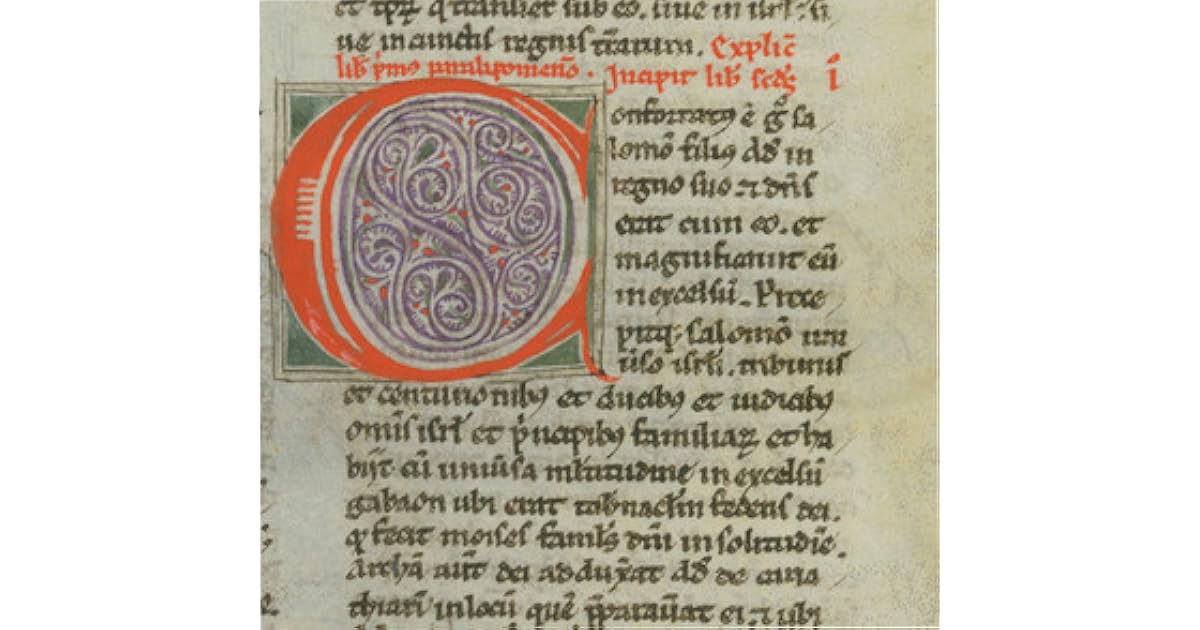 et tp̃ꝝ q̃ tr̃ansier̃t sub eo. siue in isrl̃. si
ue in cunctis regnis t̃rarum. Explic̃
lib̃ pͥmo paralipomenõ. Incipit lib̃ scd̃s I
Confortatꝰ ẽ gͦ sa
lomõ filiꝰ dd̃ in
regno suo ⁊ dñs
erat cum eo. et
magnificauit eũ
in excelsũ. Prece
pitq; salomõ uni
ũso isrl̃i. tribunis
et centurionibꝰ et ducibꝰ et iudicibꝰ
om̃is isrl̃ et pͥncipibꝰ familiaꝝ et ha
bijt cũ uniũsa ml̃titudine in excelsũ
gabaon ubi erat tab̃nacl̃m federis dei.
qͥ fecit moises famul̃s dñi in solitudiẽ.
Archã aũt dei adduẋat dd̃ de caria
thiarĩ in locũ quẽ p̃parau̾at ei. ⁊ ubi